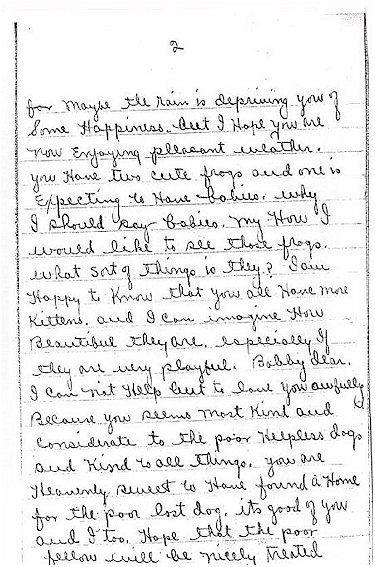 2
for maybe the rain is depriving you of
Some Happiness. but I Hope you are
now Enjoying pleasant weather.
you Have two cute frogs and one is
Expecting to Have babies. why
I should say babies. my How I
would like to see those frogs.
what sort of things is they? I am
Happy to Know that you all Have more
Kittens. and I can imagine How
Beautiful they are. especially If
they are very playful. Bobby dear,
I can not Help but to love you awfully
Because you seems most Kind and
considerate to the poor Helpless dogs
and Kind to all things. you are
Heavenly sweet to Have found a Home
for the poor lost dog. its good of you
and I too, Hope that the poor
fellow will be nicely treated